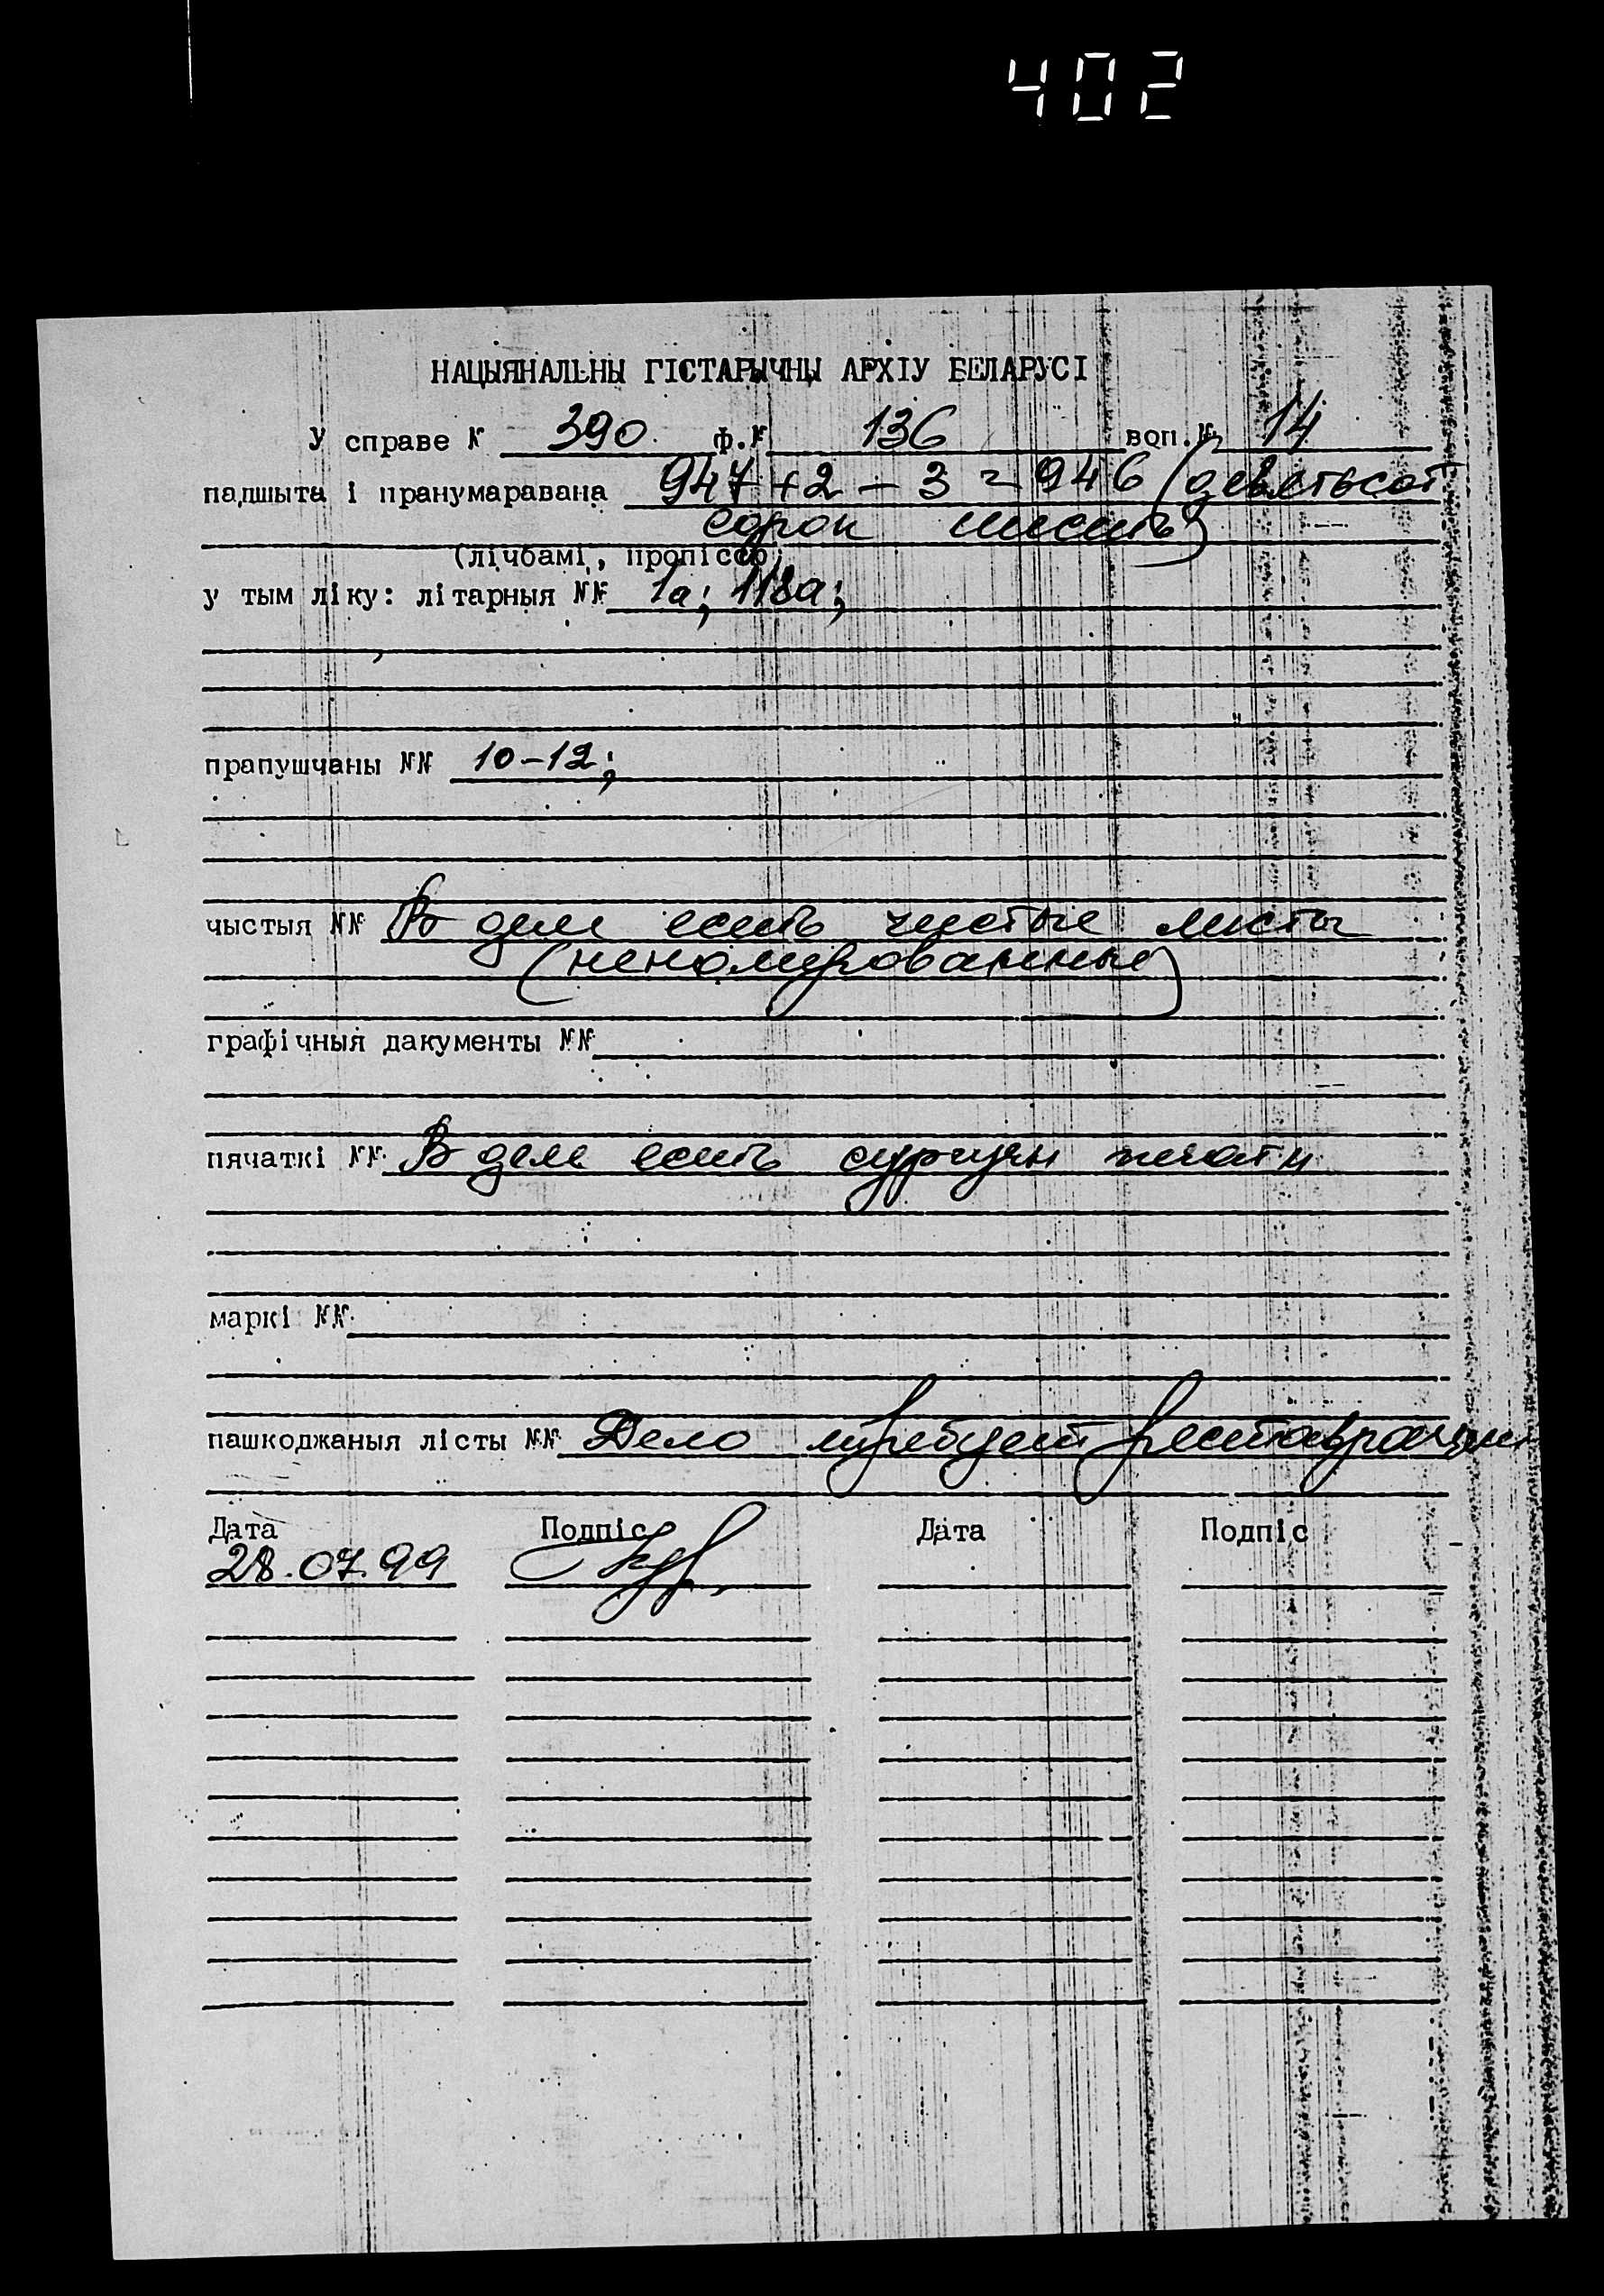 402
НАЦЫЯНАЛЬНЫ ГІСТАРЫЧНЫ АРХІУ БЕЛАРУСІ
У справе № 390. ф.№ 136 воп.№ 14
падшыта і пранумаравана 947+2-3=946 (девятьсот
сорок шесть)
(лічбамі, пропіссю)
у тым ліку: літарныя №№ 1а; 118а;
прапушчаны №№ 10-12;
чыстыя №№ В деле есть чистые листы
(неномерованные)
графічныя дакументы №№
пячаткі №№ В деле есть сургучн печати
маркі №№
пашкоджаныя лісты №№ Дело требует реставрации
Дата Подпіс Дата Подпіс
28.07.99